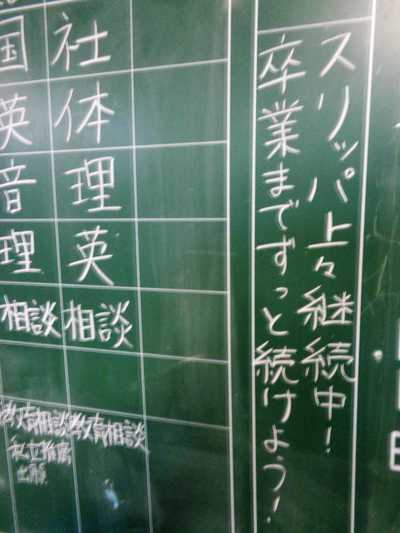 スリッパ上々継続中！
卒業までずっと続けよう！
社
体
理
英
相談
教育相談
国
英
音
理
相談
教育相談
私立推薦
出願